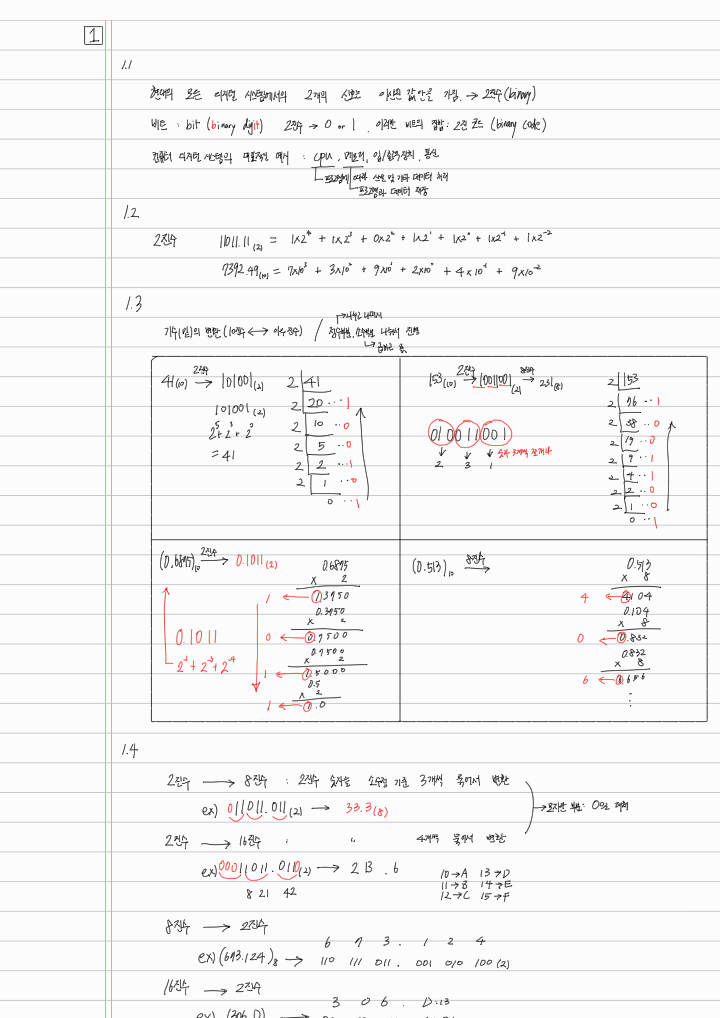 1
1.1
현대의 모든 디지털 시스템에서의 2개의 신호로 이산된 값만을 가짐. → 2진수(binary)
비트 : bit (binary digit) 2진수 → 0 or 1 . 이러한 비트의 집합: 2진 코드 (binary code)
컴퓨터 디지털 시스템의 대표적인 예시 : CPU, 메모리, 입/출력 장치, 통신
프로그램에 따라 산술 및 기타 데이터 처리
프로그램과 데이터 저장
1.2
2진수 11011.11(2) = 1x2⁴ + 1x2³ + 0x2² + 1x2¹ + 1x2⁰ + 1x2⁻¹ + 1x2⁻²
7392.49(10) = 7x10³ + 3x10² + 9x10¹ + 2x10⁰ + 4x10⁻¹ + 9x10⁻²
1.3
기수(밑)의 변환 (10진수 ←→ 이수진수) / 정수부분, 소수부분 나눠서 진행
41(10) 2진수 → 101001(2)
101001(2)
2⁵+2³+2⁰
= 41
2 41
2 20 ··· 1
2 10 ·· 0
2 5 ·· 0
2 2 ·· 1
2 1 ·· 0
0 ·· 1
153(10) 2진수 → 10011001(2) 8진수 → 231(8)
010011001
↓ ↓ ↓ 숫자 3개씩 끊겨나
2 3 1
2 153
2 76 ·· 1
2 38 ·· 0
2 19 ·· 0
2 9 ·· 1
2 4 ·· 1
2 2 ·· 0
2 1 ·· 0
0 ·· 1
(0.6875)10 2진수 → 0.1011(2)
0.1011
2⁻¹+2⁻³+2⁻⁴
0.6875
x 2
1 ← 1.3750
0.3750
x 2
0 ← 0.7500
0.7500
x 2
1 ← 1.5000
0.5
x 2
1 ← 1.0
(0.513)10 8진수 →
0.513
x 8
4 ← 4.104
0.104
x 8
0 ← 0.832
0.832
x 8
6 ← 6.656
⋮
1.4
2진수 → 8진수 : 2진수 숫자를 소수점 기준 3개씩 묶어서 변환
ex) 011011.011(2) → 33.3(8)
2진수 → 16진수 " " 4개씩 묶어서 변환
ex) 00011011.0110(2) → 2 B . 6
8 21 42
10→A 13→D
11→B 14→E
12→C 15→F
모자란 부분: 0으로 대체
8진수 → 2진수
6 7 3 . 1 2 4
ex) (673.124)8 → 110 111 011 . 001 010 100 (2)
16진수 → 2진수
3 0 6 . D:13
ex) (306.D)